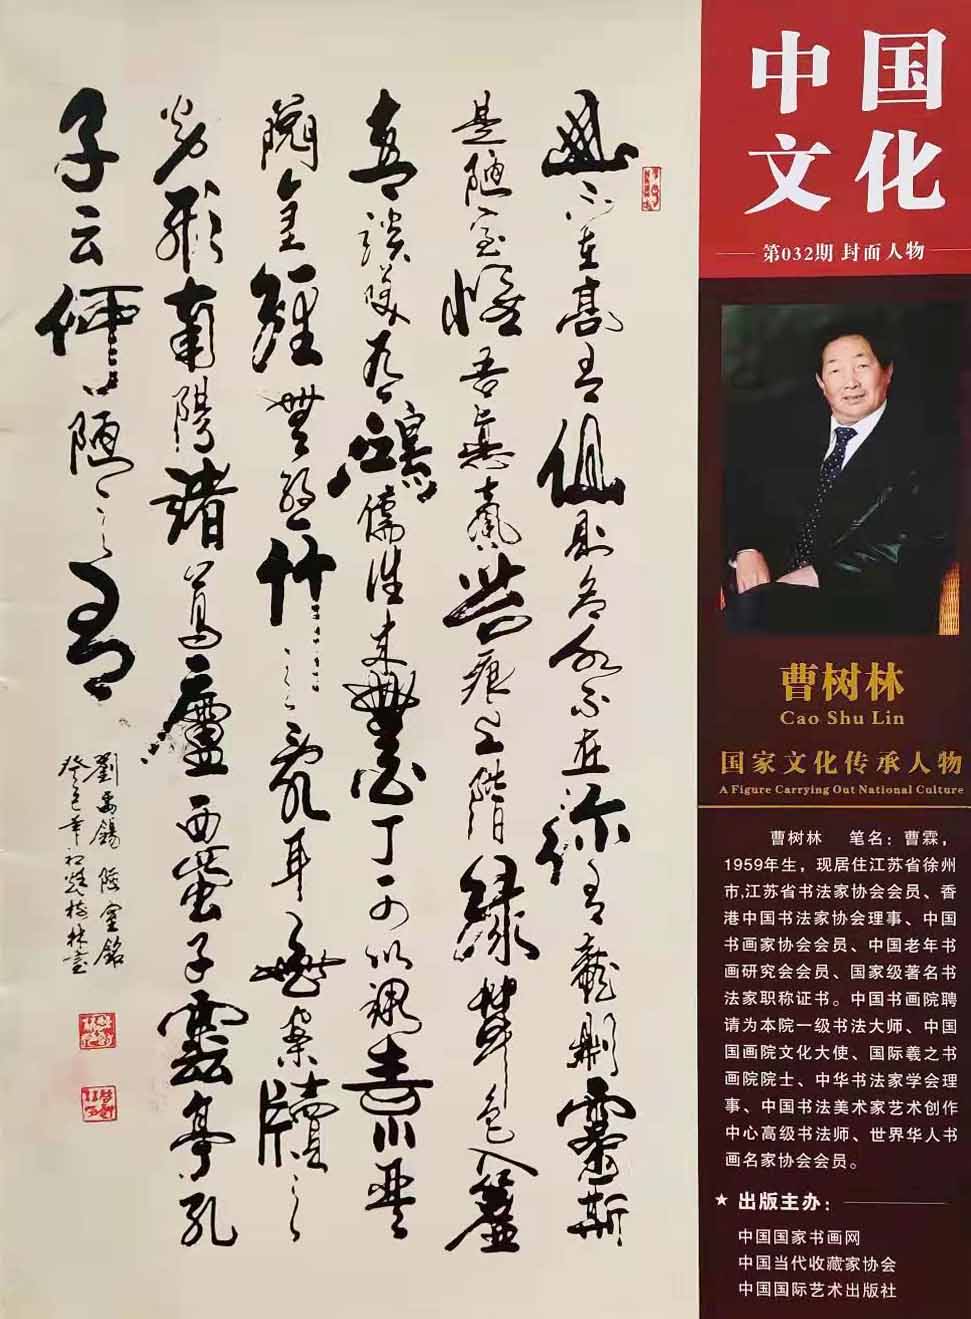 山不在高有仙則名水不在深有龍則靈斯
是陋室惟吾德馨苔痕上階綠草色入簾
青談笑有鴻儒往來無白丁可以調素琴
閱金經無絲竹之亂耳無案牘之
勞形南陽諸葛廬西蜀子雲亭孔
子云何陋之有
劉禹錫 陋室銘
癸巳年初樹林書
中国
文化
第032期 封面人物
曹树林
Cao Shu Lin
国家文化传承人物
A Figure Carrying Out National Culture
曹树林 笔名：曹霖，
1959年生，现居住江苏省徐州
市,江苏省书法家协会会员、香
港中国书法家协会理事、中国
书画家协会会员、中国老年书
画研究会会员、国家级著名书
法家职称证书。中国书画院聘
请为本院一级书法大师、中国
国画院文化大使、国际羲之书
画院院士、中华书法家学会理
事、中国书法美术家艺术创作
中心高级书法师、世界华人书
画名家协会会员。
★ 出版主办：
中国国家书画网
中国当代收藏家协会
中国国际艺术出版社